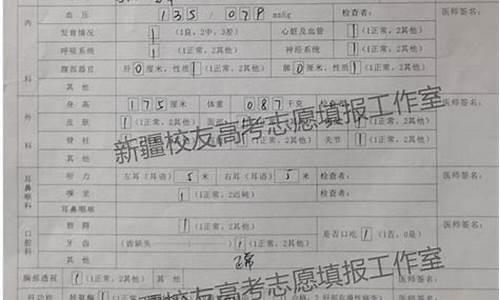 内科
血压 135/079 mmHg 检查者: 医师签名:
发育情况 1 (1良,2中,3差) 心脏及血管 1 (1正常,2其他)
呼吸系统 1 (1正常,2其他) 神经系统 1 (1正常,2其他)
腹部器官 肝 0 厘米,性质 1 (1正常,2其他) 脾 0 厘米,性质 1 (1正常,2其他)
其他
外科
身高 175 厘米 体重 087 千克 医师签名:
皮肤 1 (1正常,2其他) 面部 (1正常,2其他)
脊柱 1 关节 1 (1正常,2其他)
其他
耳鼻喉科
听力 左耳(耳语) 5 米 右耳(耳语) 5 米 检查者: 医师签名:
嗅觉 1 (1正常,2迟钝) 检查者:
耳鼻咽喉
口腔科
唇腭 1 (1正常,2其他) 是否口吃 1 (1否,0是) 医师签名:
牙齿 (齿缺失 1 (1正常,2其他)
其他 正常
胸部透视 1 (1正常,2其他) 医师签名:
肝功能 转氨酶
新疆校友高考志愿填报工作室
新疆校友高考志愿填报工作室